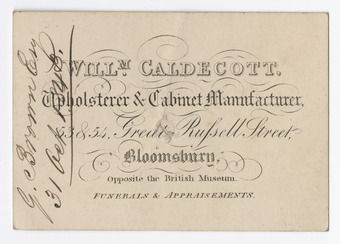 WILLM CALDECOTT.
Upholsterer & Cabinet Manufacturer,
53 & 54, Great Russell Street,
Bloomsbury.
Opposite the British Museum.
FUNERALS & APPRAISEMENTS.
G. Brown Esq
31 Oct